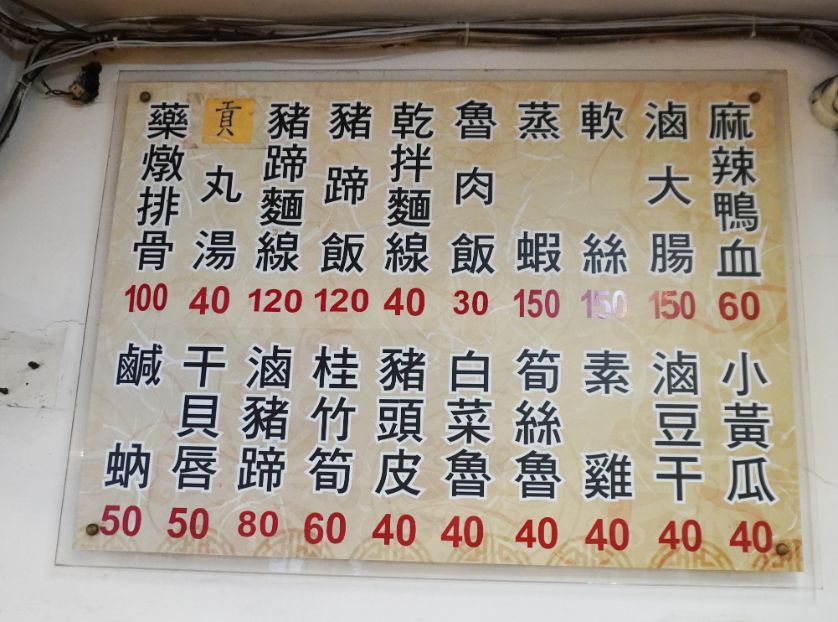 麻辣鴨血 60
滷大腸 150
軟絲 150
蒸蝦 150
魯肉飯 30
乾拌麵線 40
豬蹄飯 120
豬蹄麵線 120
貢丸湯 40
藥燉排骨 100
小黃瓜 40
滷豆干 40
素雞 40
筍絲魯 40
白菜魯 40
豬頭皮 40
桂竹筍 60
滷豬蹄 80
干貝唇 50
鹹蚋 50